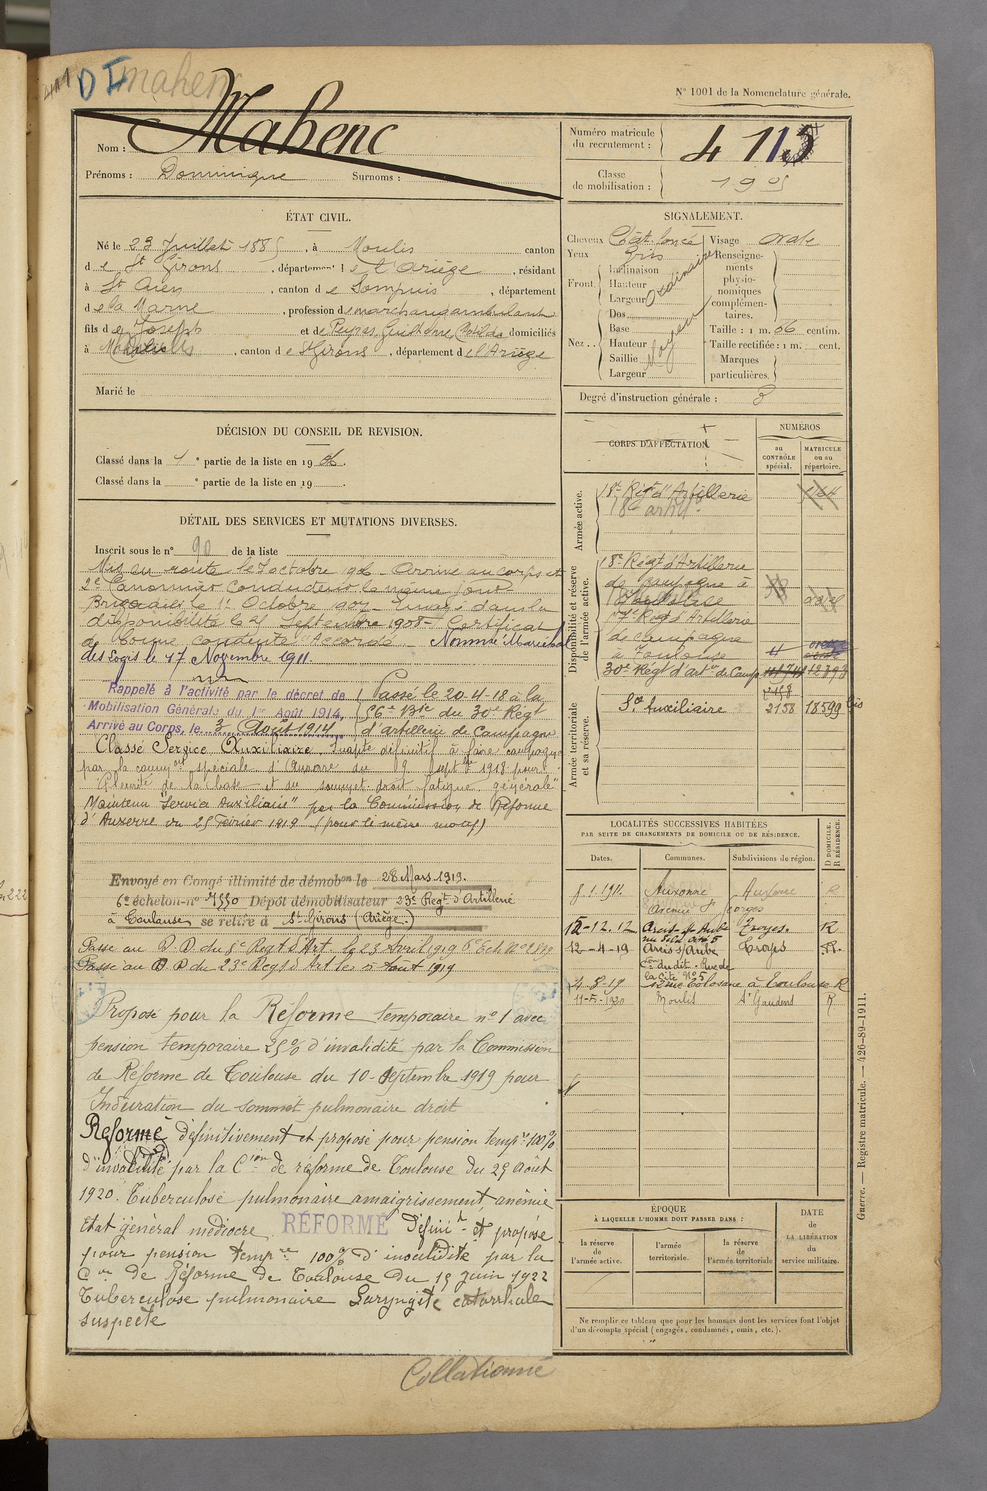 N° 1001 de la Nomenclature générale.
411 DI mahenc
Nom : Mahenc
Prénoms : Dominique Surnoms :
Numéro matricule du recrutement : 4 113
Classe de mobilisation : 1905
ÉTAT CIVIL.
Né le 23 Juillet 1885, à Moulis canton
de St Girons, département de l'Ariège, résidant
à St Ouen, canton de Sompuis, département
de la Marne, profession de marchand ambulant
fils de Joseph et de Peyras, Guilheme, Clotilde domiciliés
à Moulis, canton de St Girons, département de l'Ariège
Marié le
SIGNALEMENT.
Cheveux Chât. foncé
Yeux gris
Front. Inclinaison
Hauteur
Largeur
Ordinaire
Nez.. Dos
Base
Hauteur
Saillie
Largeur
Moyen
Visage ovale
Renseignements physionomiques complémentaires.
Taille : 1 m. 66 centim.
Taille rectifiée : 1 m. cent.
Marques particulières.
Degré d'instruction générale : 3
DÉCISION DU CONSEIL DE REVISION.
Classé dans la 1 e partie de la liste en 1906.
Classé dans la e partie de la liste en 19 .
DÉTAIL DES SERVICES ET MUTATIONS DIVERSES.
Inscrit sous le n° 90 de la liste
Mis en route le 7 octobre 906 - Arrivé au corps et
2e Canonnier Conducteur le même jour -
Brigadier le 1er Octobre 907 - Envoyé dans la
disponibilité le 25 Septembre 1908 - Certificat
de bonne conduite "Accordé" - Nommé Maréchal
des Logis le 17 Novembre 1911.
Rappelé à l'activité par le décret de
Mobilisation Générale du 1er Août 1914,
Arrivé au Corps, le 3 Août 1914
Passé le 20-4-18 à la
56e Bie du 30e Régt
d'artillerie de Campagne
Classé Service Auxiliaire. Inapte définitif à faire campagne
par la common spéciale d'Auxerre du 9 Septbre 1918 pour
"Pleurite de la base et du sommet droit fatigue générale"
Maintenu "Service Auxiliaire" par la Commission de Réforme
d'Auxerre du 25 Février 1919 (pour le même motif)
Envoyé en Congé illimité de démobon le 28 Mars 1919.
6e échelon - n° 4550 Dépôt démobilisateur 23e Regt d'Artillerie
à Toulouse se retire à St Girons (Ariège)
Passé au D.D. du 5e Regt d'Art. le 23 Avril 1919
Passé au D D du 23e Regt d'Art le 5 Aout 1919
Proposé pour la Réforme temporaire n° 1 avec
pension temporaire 25% d'invalidité par la Commission
de Réforme de Toulouse du 10 - Septembre 1919 pour
Induration du sommet pulmonaire droit
Réformé définitivement et proposé pour pension tempre 100%
d'invalidité par la Cion de réforme de Toulouse du 25 Août
1920. Tuberculose pulmonaire amaigrissement, anémie
état général médiocre. RÉFORMÉ Définit et proposé
pour pension tempre 100% d'invalidité par la
Con de Réforme de Toulouse du 15 juin 1922
Tuberculose pulmonaire Laryngite catarrhale
suspecte
CORPS D'AFFECTATION.
NUMÉROS
au CONTRÔLE spécial.
MATRICULE ou au répertoire.
Armée active.
18e Régt d'Artillerie
18e artie
Disponibilité et réserve de l'armée active.
18e Régt d'Artillerie
de campagne à
Toulouse
57e Régt d'Artillerie
de campagne
à Toulouse
30e Régt d'artie de Camp
Armée territoriale et sa réserve.
Sce Auxiliaire 2158 18599 bis
LOCALITÉS SUCCESSIVES HABITÉES
PAR SUITE DE CHANGEMENTS DE DOMICILE OU DE RÉSIDENCE.
Dates. Communes. Subdivisions de région. D DOMICILE. R RÉSIDENCE.
8.1.1912 Auxonne Auxonne R
15-12.12 Arcis-s/-Aube Troyes. R
12-4-19 Arcis s/Aube Troyes R.
4-8-19 à Toulouse R
11-5-1920 Moulis St Gaudens R
ÉPOQUE
À LAQUELLE L'HOMME DOIT PASSER DANS :
la réserve de l'armée active.
l'armée territoriale.
la réserve de l'armée territoriale
DATE de LA LIBÉRATION du service militaire.
Ne remplir ce tableau que pour les hommes dont les services font l'objet
d'un décompte spécial (engagés, condamnés, omis, etc.).
Guerre. — Registre matricule. — 426-89-1911.
Collationné